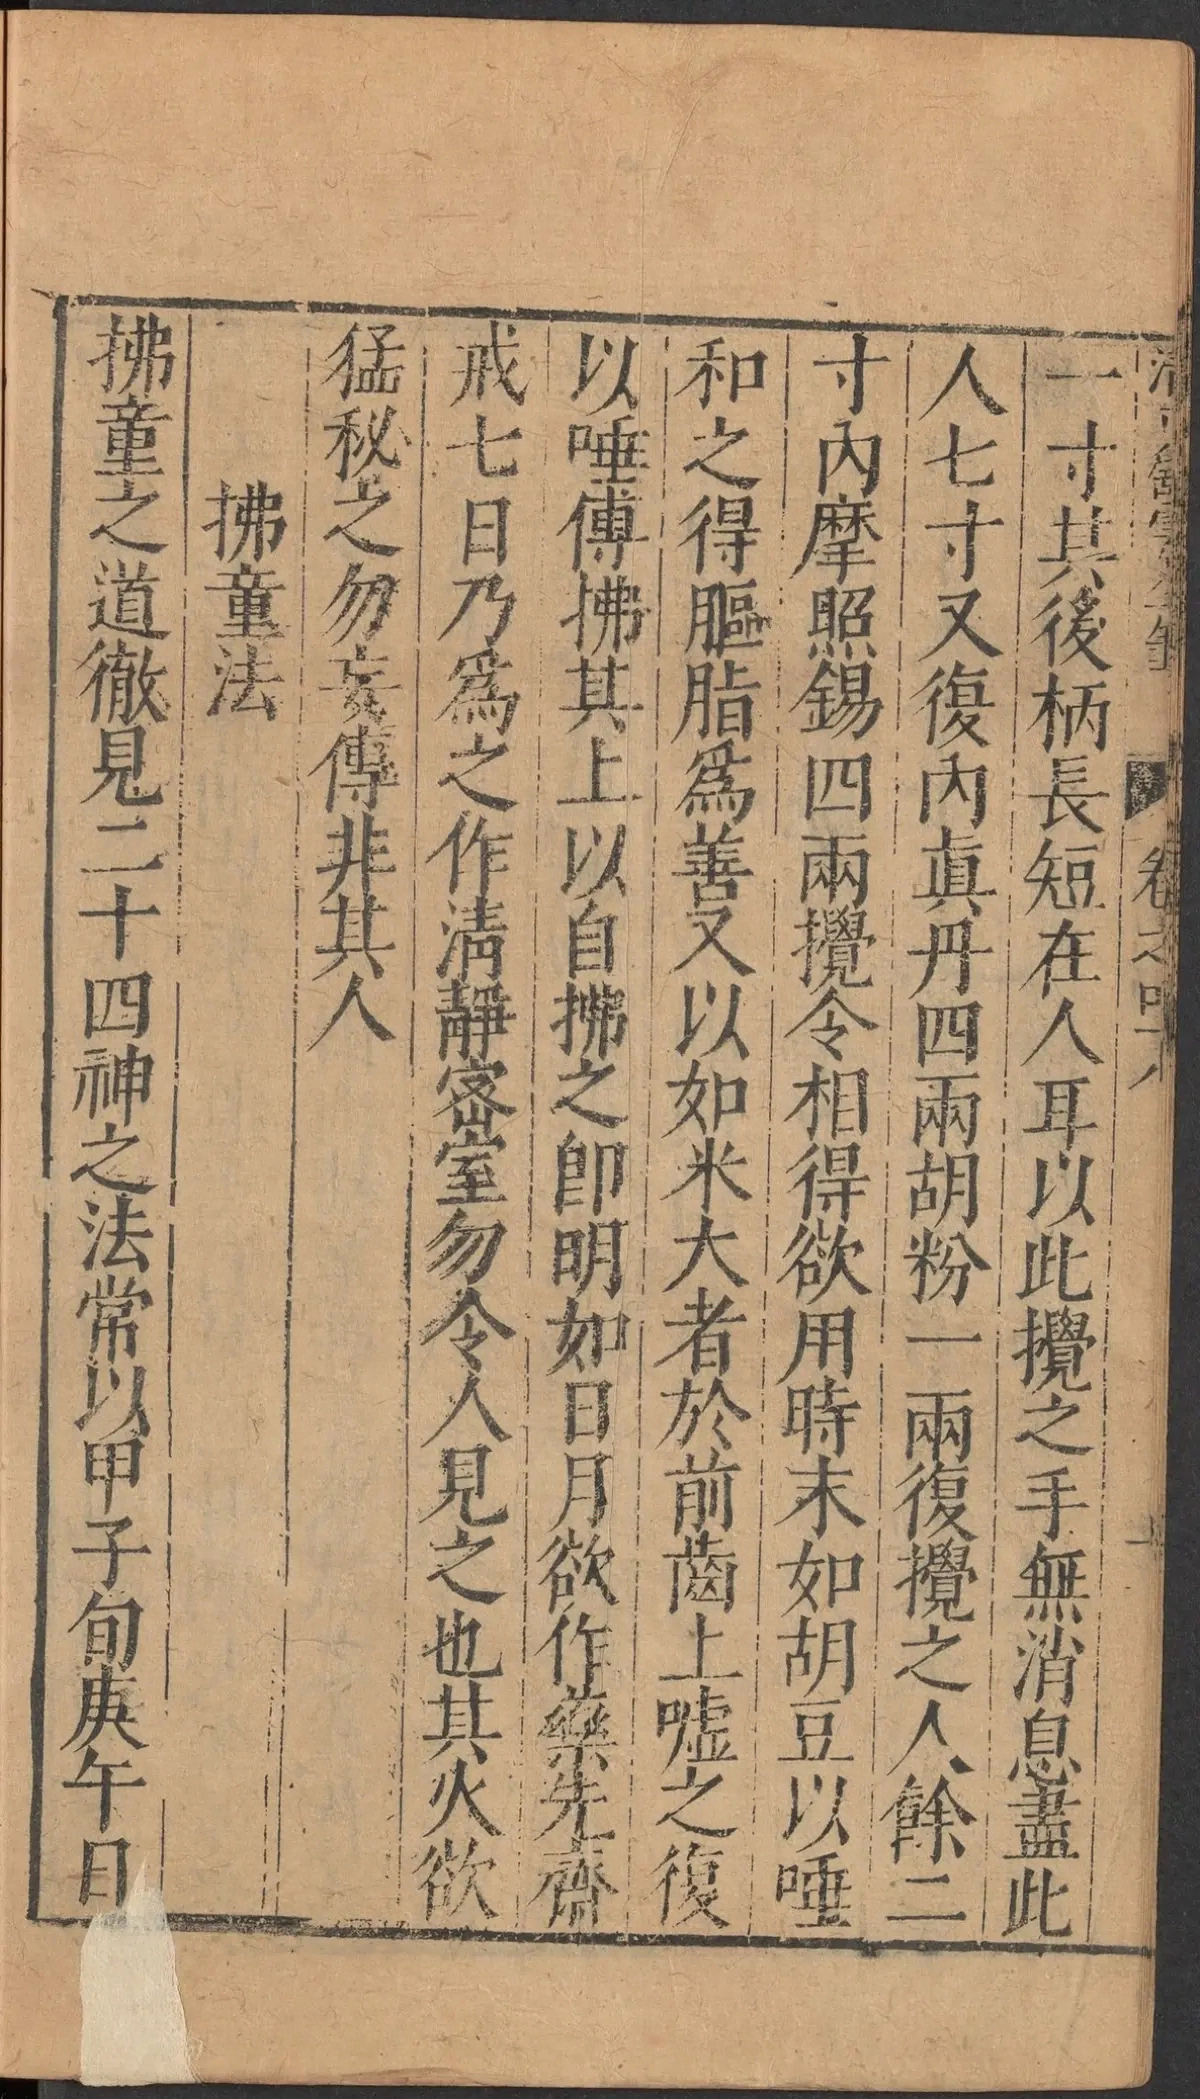 一寸其後柄長短在人耳以此攪之手無消息盡此
人七寸又復內眞丹四兩胡粉一兩復攪之人餘二
寸內摩照錫四兩攪令相得欲用時末如胡豆以唾
和之得膒脂爲善又以如米大者於前齒上嘘之復
以唾傅拂其上以自拂之卽明如日月欲作藥先齋
戒七日乃爲之作淸靜密室勿令人見之也其火欲
猛秘之勿妄傳非其人
拂童法
拂童之道徹見二十四神之法常以甲子旬庚午日
卷之四十八